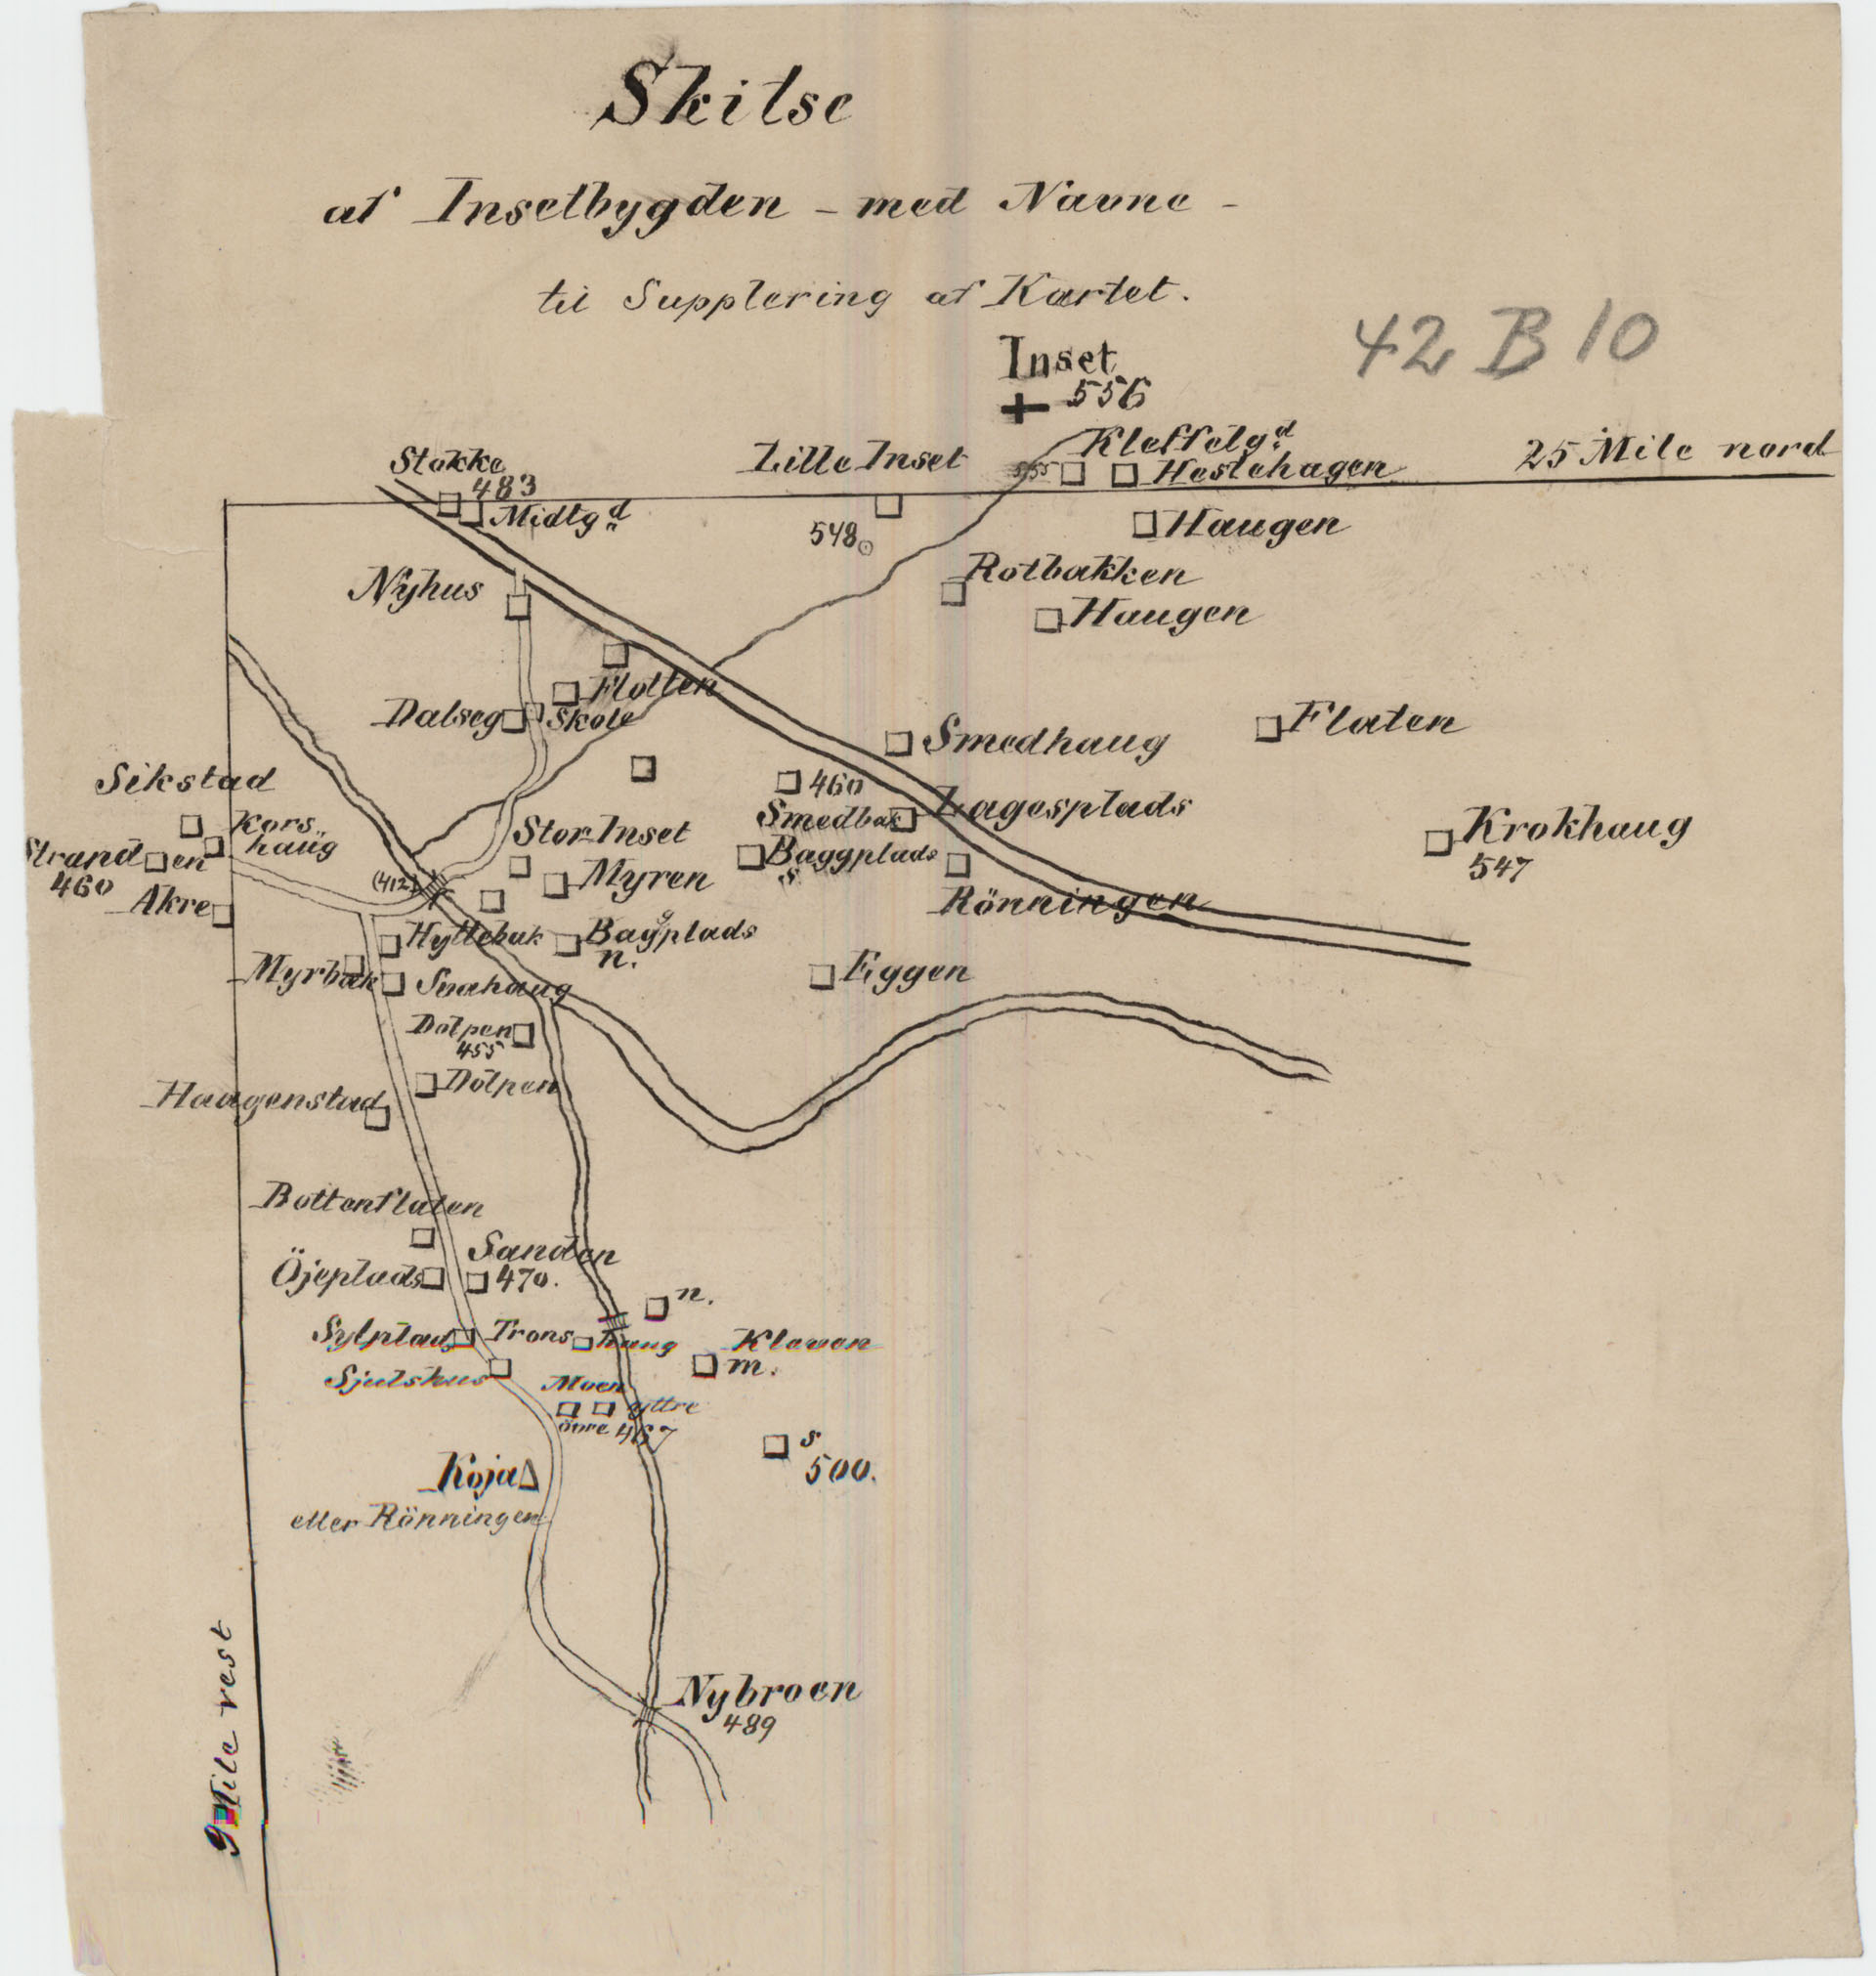 Skitse
af Insetbygden - med Navne -
til Supplering af Kartet.
42 B 10
Inset
556
Kleffelgd
555
Hestehagen
25 Mile nord
Lille Inset
548
Stokke
483
Midtgd
Haugen
Rotbakken
Haugen
Nyhus
Flotten
Dalseg
Skole
Smedhaug
Flaten
Sikstad
460
Smedbak
Lagesplads
Kors
haug
Stor Inset
Krokhaug
547
Stranden
460
Baggplads
s.
Myren
(412)
Akre
Rönningen
Hyttebak
Baggplads
n.
Myrbak
Svahaug
Eggen
Dolpen
455
Dolpen
Haagenstad
Bottenflaten
Sanden
470.
Öjeplads
n.
Sylplads
Tronshaug
Kleven
m.
Sjulshus
Moen
yttre
övre 467
s
500.
Koja
eller Rönningen
Nybroen
489
9 Mile vest